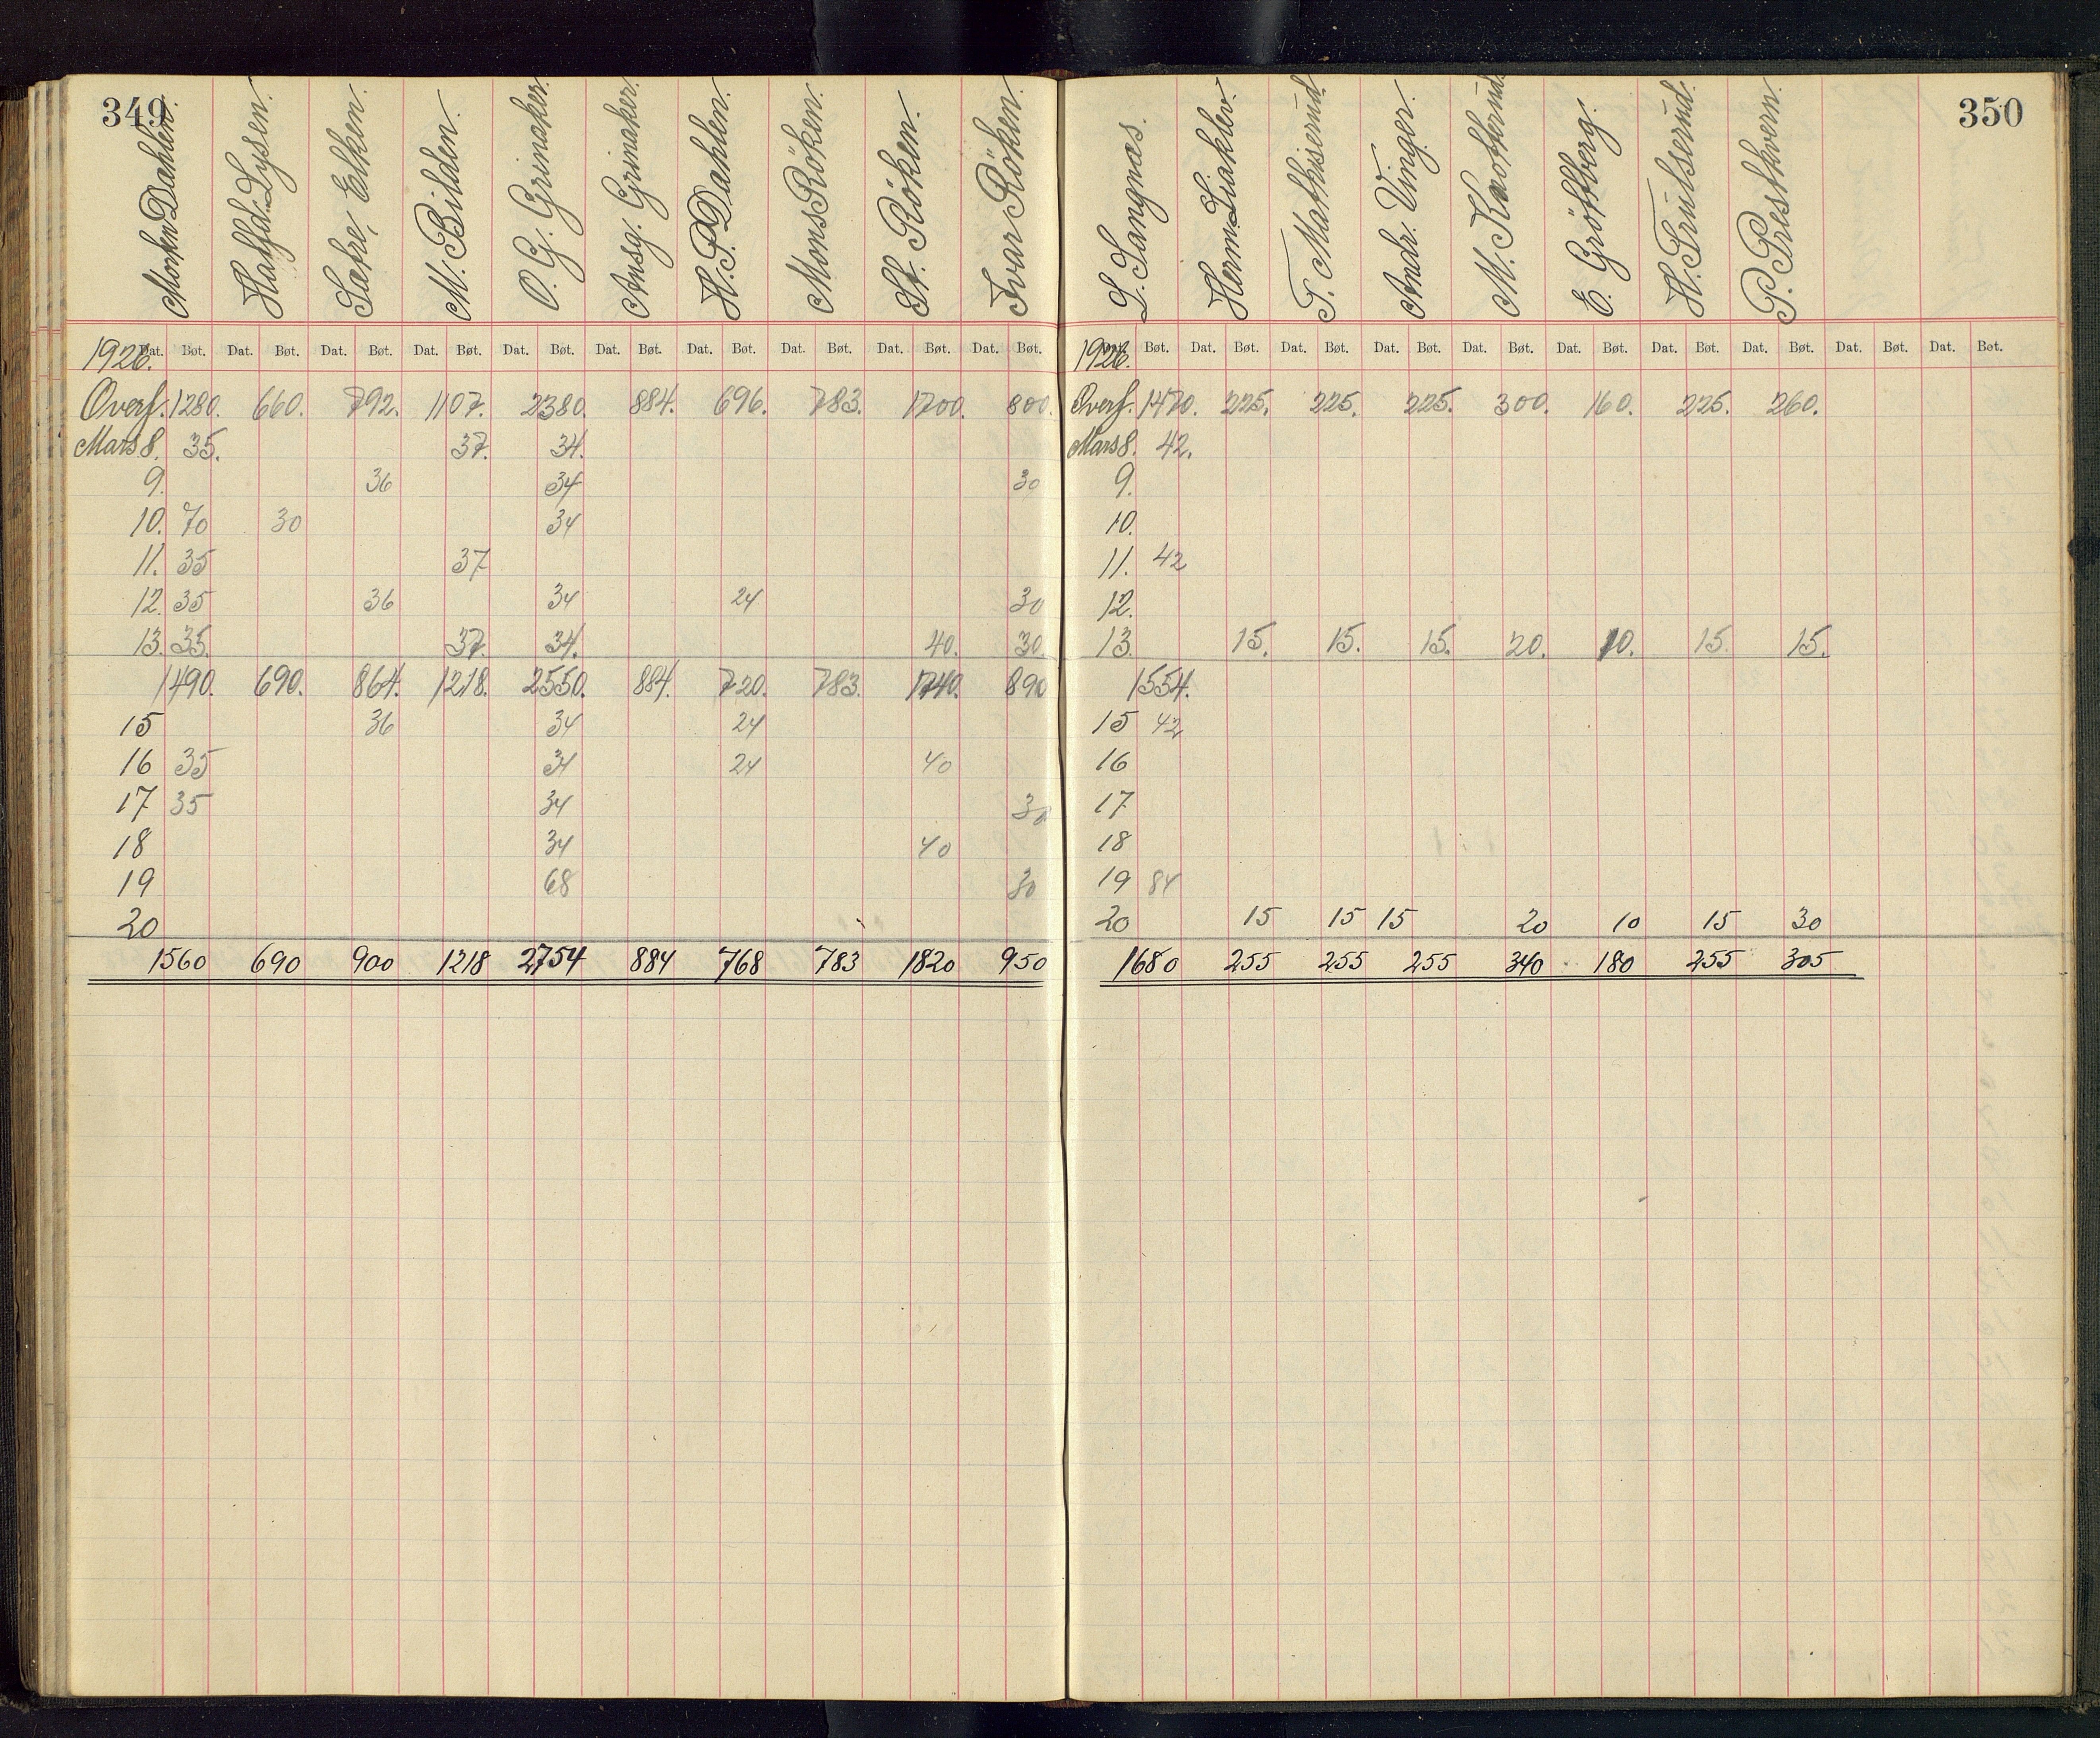 349
Morten Dahlen. Halfd. Lysen. Sæfre, Elken. M. Bilden. O. G. Grinaker. Ansg. Grinaker. H. P. Dahlen. Mons Röken. St. Röken. Ivar Röken.
1926. Dat. Bøt. Dat. Bøt. Dat. Bøt. Dat. Bøt. Dat. Bøt. Dat. Bøt. Dat. Bøt. Dat. Bøt. Dat. Bøt. Dat. Bøt.
Overf. 1280. 660. 792. 1107. 2380. 884. 696. 783. 1700. 800.
Mars 8. 35. 37. 34.
9. 36 34 30
10. 70 30 34
11. 35 37
12. 35 36 34 24 30
13. 35. 37. 34. 40. 30.
1490. 690. 864. 1218. 2550. 884. 720. 783. 1740. 890
15 36 34 24
16 35 34 24 40
17 35 34 30
18 34 40
19 68 30
20
1560 690 900 1218 2754 884 768 783 1820 950
350
L. Langnæs. Herm. Liaklev. T. Mathiserud. Andr. Vinger. M. E. Gröffberg. H. Trulserud. P. Presthvern.
1926. Bøt. Dat. Bøt. Dat. Bøt. Dat. Bøt. Dat. Bøt. Dat. Bøt. Dat. Bøt. Dat. Bøt. Dat. Bøt. Dat. Bøt.
Overf. 1470. 225. 225. 225. 300. 160. 225. 260.
Mars 8. 42.
9.
10.
11. 42
12.
13. 15. 15. 15. 20. 10. 15. 15.
1554.
15 42
16
17
18
19 84
20 15 15 15 20 10 15 30
1680 255 255 255 340 180 255 305